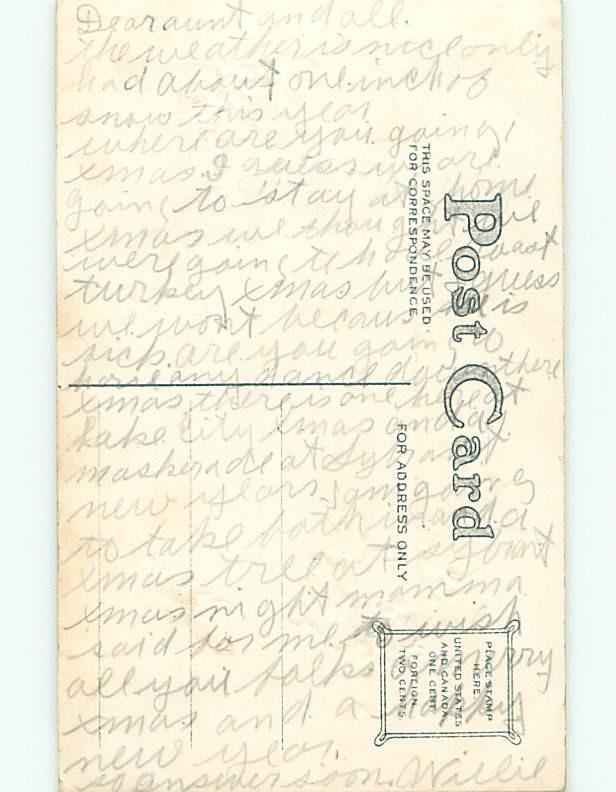 Dear aunt and all.
the weather is nice only
had about one inch of
snow this year
where are you going
xmas. I guess we are
going to stay at home
xmas we thought we
were going to have roast
turkey xmas but I guess
we wont because he is
sick. are you going to
have any dances down there
xmas there is one here at
Lake City xmas and a
maskerade at
new years. I am going
to take both in and a
xmas tree at
xmas night mamma
said for me to wish
all you folks a merry
xmas and a happy
new year.
so answer soon. Willie
Post Card
THIS SPACE MAY BE USED
FOR CORRESPONDENCE
FOR ADDRESS ONLY
PLACE STAMP
HERE.
UNITED STATES
AND CANADA
ONE CENT
FOREIGN
TWO CENTS.